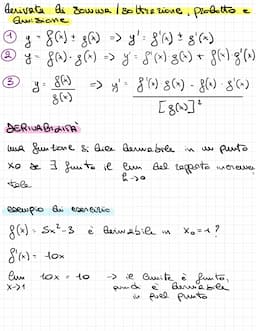 derivata di somma / sottrazione, prodotto e
divisione
① y = f(x) ± g(x) => y' = f'(x) ± g'(x)
② y = f(x) · g(x) => y' = f'(x) g(x) + f(x) g'(x)
③ y = f(x) / g(x) => y' = f'(x) g(x) - f(x) · g'(x) / [g(x)]²
DERIVABILITÀ
una funzione si dice derivabile in un punto
x0 se ∃ finito il lim del rapporto incremen
tale h→0
esempio di esercizio
f(x) = 5x² - 3 è derivabile in x0 = 1 ?
f'(x) = 10x
lim 10x = 10 → il limite è finito,
x→1 quindi è derivabile
in quel punto